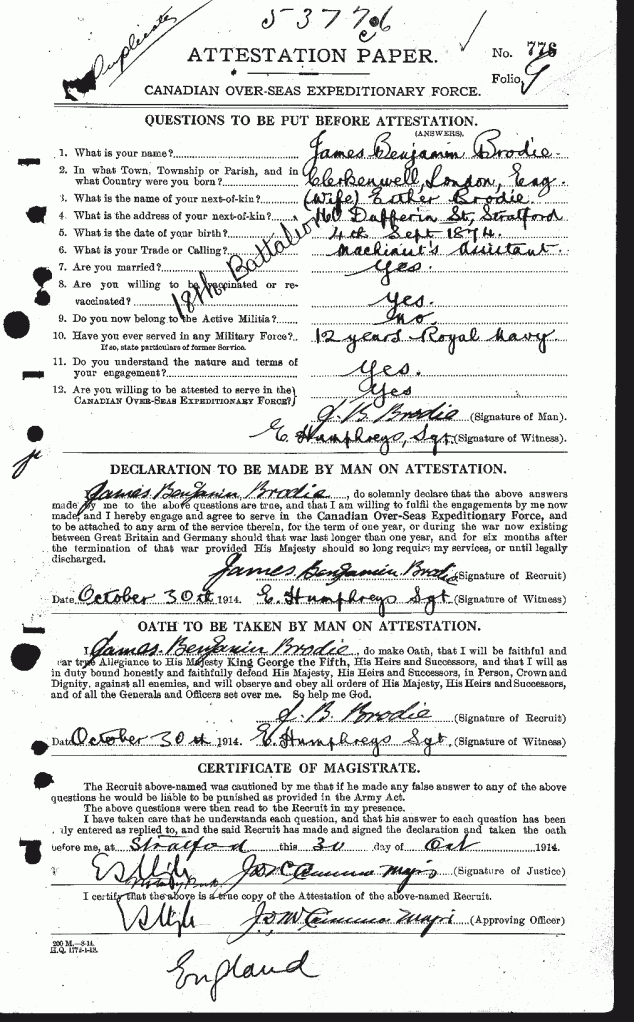 53776
Duplicate
ATTESTATION PAPER.
No. 776
Folio.
CANADIAN OVER-SEAS EXPEDITIONARY FORCE.
QUESTIONS TO BE PUT BEFORE ATTESTATION.
(ANSWERS).
1. What is your name? James Benjamin Brodie.
2. In what Town, Township or Parish, and in
what Country were you born? Clerkenwell, London, Eng.
3. What is the name of your next-of-kin? (Wife) Esther Brodie.
4. What is the address of your next-of-kin? Dufferin St, Stratford
5. What is the date of your birth? 4th Sept 1874.
6. What is your Trade or Calling? Machinist's assistant.
7. Are you married? Yes.
8. Are you willing to be vaccinated or re-
vaccinated? Yes.
18th Battalion
9. Do you now belong to the Active Militia? No
10. Have you ever served in any Military Force? 12 years Royal Navy.
If so, state particulars of former Service.
11. Do you understand the nature and terms of
your engagement? Yes.
12. Are you willing to be attested to serve in the
CANADIAN OVER-SEAS EXPEDITIONARY FORCE? Yes
J. B. Brodie (Signature of Man).
E. Humphreys, Sgt. (Signature of Witness).
DECLARATION TO BE MADE BY MAN ON ATTESTATION.
I, James Benjamin Brodie, do solemnly declare that the above answers
made by me to the above questions are true, and that I am willing to fulfil the engagements by me now
made, and I hereby engage and agree to serve in the Canadian Over-Seas Expeditionary Force, and
to be attached to any arm of the service therein, for the term of one year, or during the war now existing
between Great Britain and Germany should that war last longer than one year, and for six months after
the termination of that war provided His Majesty should so long require my services, or until legally
discharged.
James Benjamin Brodie (Signature of Recruit)
Date October 30th 1914. E. Humphreys Sgt. (Signature of Witness)
OATH TO BE TAKEN BY MAN ON ATTESTATION.
I, James Benjamin Brodie, do make Oath, that I will be faithful and
bear true Allegiance to His Majesty King George the Fifth, His Heirs and Successors, and that I will as
in duty bound honestly and faithfully defend His Majesty, His Heirs and Successors, in Person, Crown and
Dignity, against all enemies, and will observe and obey all orders of His Majesty, His Heirs and Successors,
and of all the Generals and Officers set over me. So help me God.
J. B. Brodie (Signature of Recruit)
Date October 30th 1914. E. Humphreys Sgt. (Signature of Witness)
CERTIFICATE OF MAGISTRATE.
The Recruit above-named was cautioned by me that if he made any false answer to any of the above
questions he would be liable to be punished as provided in the Army Act.
The above questions were then read to the Recruit in my presence.
I have taken care that he understands each question, and that his answer to each question has been
duly entered as replied to, and the said Recruit has made and signed the declaration and taken the oath
before me, at Stratford this 30 day of Oct 1914.
(Signature of Justice)
I certify that the above is a true copy of the Attestation of the above-named Recruit.
(Approving Officer)
200 M.—8-14.
H.Q. 1772-1-13.
England